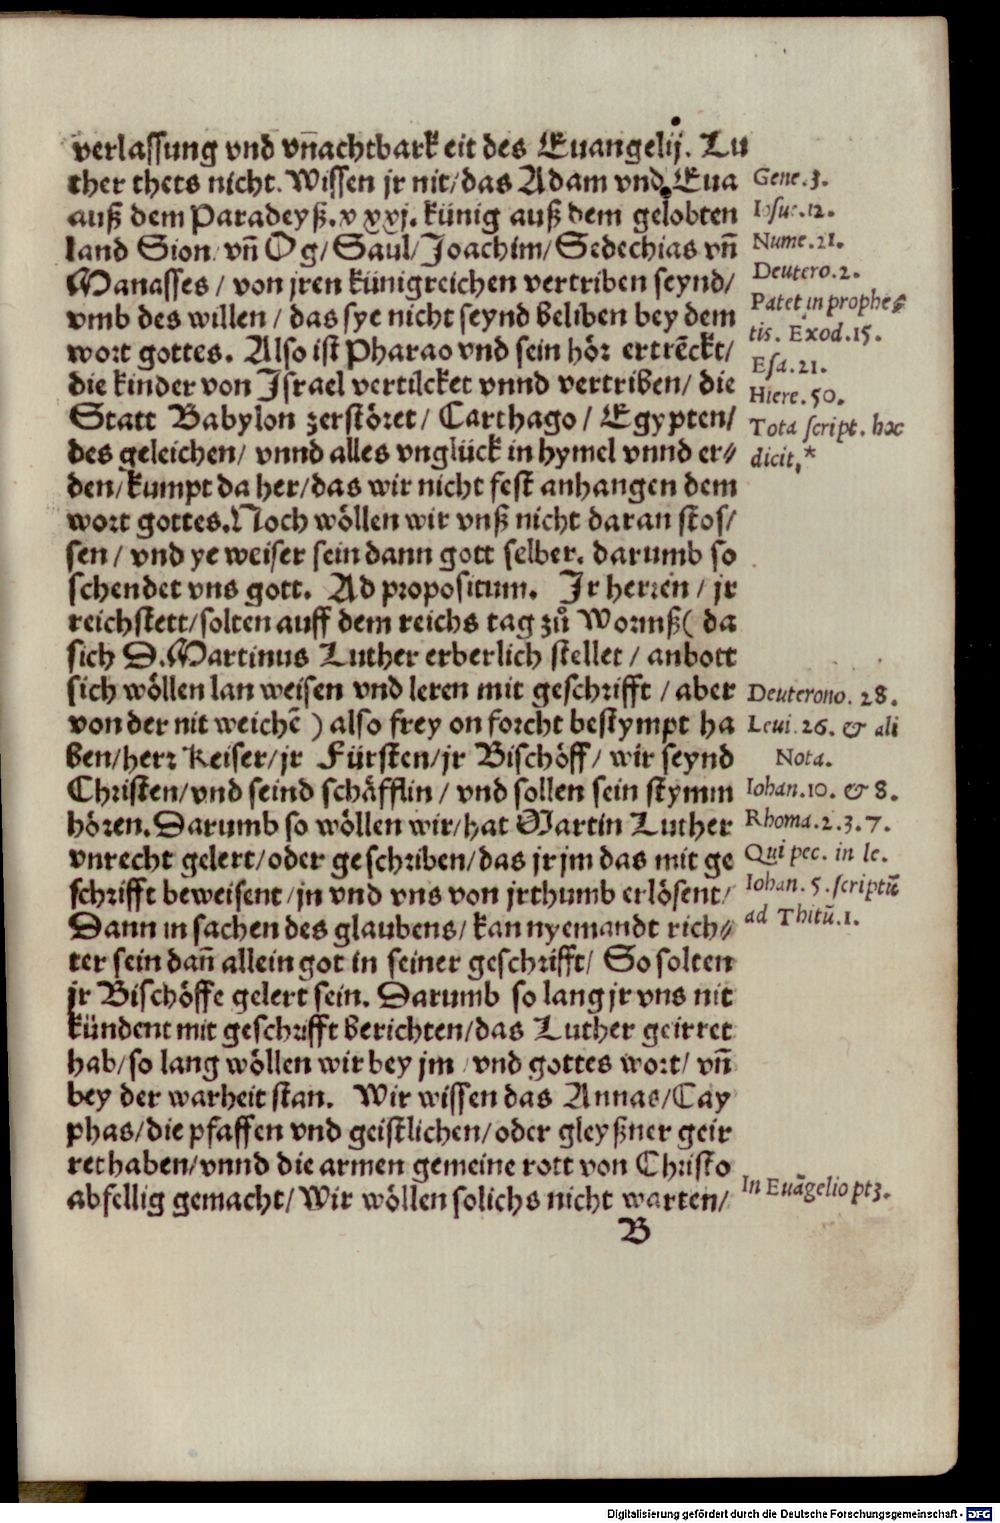 verlassung vnd vn̄achtbark eit des Euangelij. Lu
ther thets nicht. Wissen jr nit/ das Adam vnd Eua
auß dem Paradeyß. xxxj. künig auß dem gelobten
land Sion/ vn̄ Og/ Saul/ Joachim/ Sedechias vn̄
Manasses / von jren künigreichen vertriben seynd/
vmb des willen / das sye nicht seynd beliben bey dem
wort gottes. Also ist Pharao vnd sein hör ertrēckt/
die kinder von Israel vertilcket vnnd vertriben/ die
Statt Babylon zerstöret/ Carthago / Egypten/
des geleichen/ vnnd alles vnglück in hymel vnnd er⸗
den/ kumpt da her/ das wir nicht fest anhangen dem
wort gottes. Noch wöllen wir vnß nicht daran stos/
sen / vnd ye weiser sein dann gott selber. darumb so
schendet vns gott. Ad propositum. Ir herren / jr
reichstett/ solten auff dem reichs tag zů Wormß( da
sich D. Martinus Luther erberlich stellet / anbott
sich wöllen lan weisen vnd leren mit geschrifft / aber
von der nit weichē ) also frey on forcht bestympt ha
ben/ herr Keiser/ jr Fürsten/ jr Bischöff/ wir seynd
Christen/ vnd seind schäfflin / vnd sollen sein stymm
hören. Darumb so wöllen wir/ hat Martin Luther
vnrecht gelert/ oder geschriben/ das jr jm das mit ge
schrifft beweisent/ jn vnd vns von jrthumb erlösent/
Dann in sachen des glaubens/ kan nyemandt rich⸗
ter sein dan̄ allein got in seiner geschrifft/ So solten
jr Bischöffe gelert sein. Darumb so lang jr vns nit
kündent mit geschrifft berichten/ das Luther geirret
hab/ so lang wöllen wir bey jm / vnd gottes wort/ vn̄
bey der warheit stan. Wir wissen das Annas/ Cay
phas/ die pfaffen vnd geistlichen/ oder gleyßner geir
ret haben/ vnnd die armen gemeine rott von Christo
abfellig gemacht/ Wir wöllen solichs nicht warten/
B
Gene. 3.
Iosue. 12.
Nume. 21.
Deutero. 2.
Patet in prophe⸗
tis. Exod. 15.
Esa. 21.
Hiere. 50.
Tota script. hoc
dicit,*
Deuterono. 28.
Leui. 26. & ali
Nota.
Iohan. 10. & 8.
Rhoma. 2. 3. 7.
Qui pec. in le.
Iohan. 5. scriptū
ad Thitū. 1.
In Euāgelio ptz.
Digitalisierung gefördert durch die Deutsche Forschungsgemeinschaft - DFG